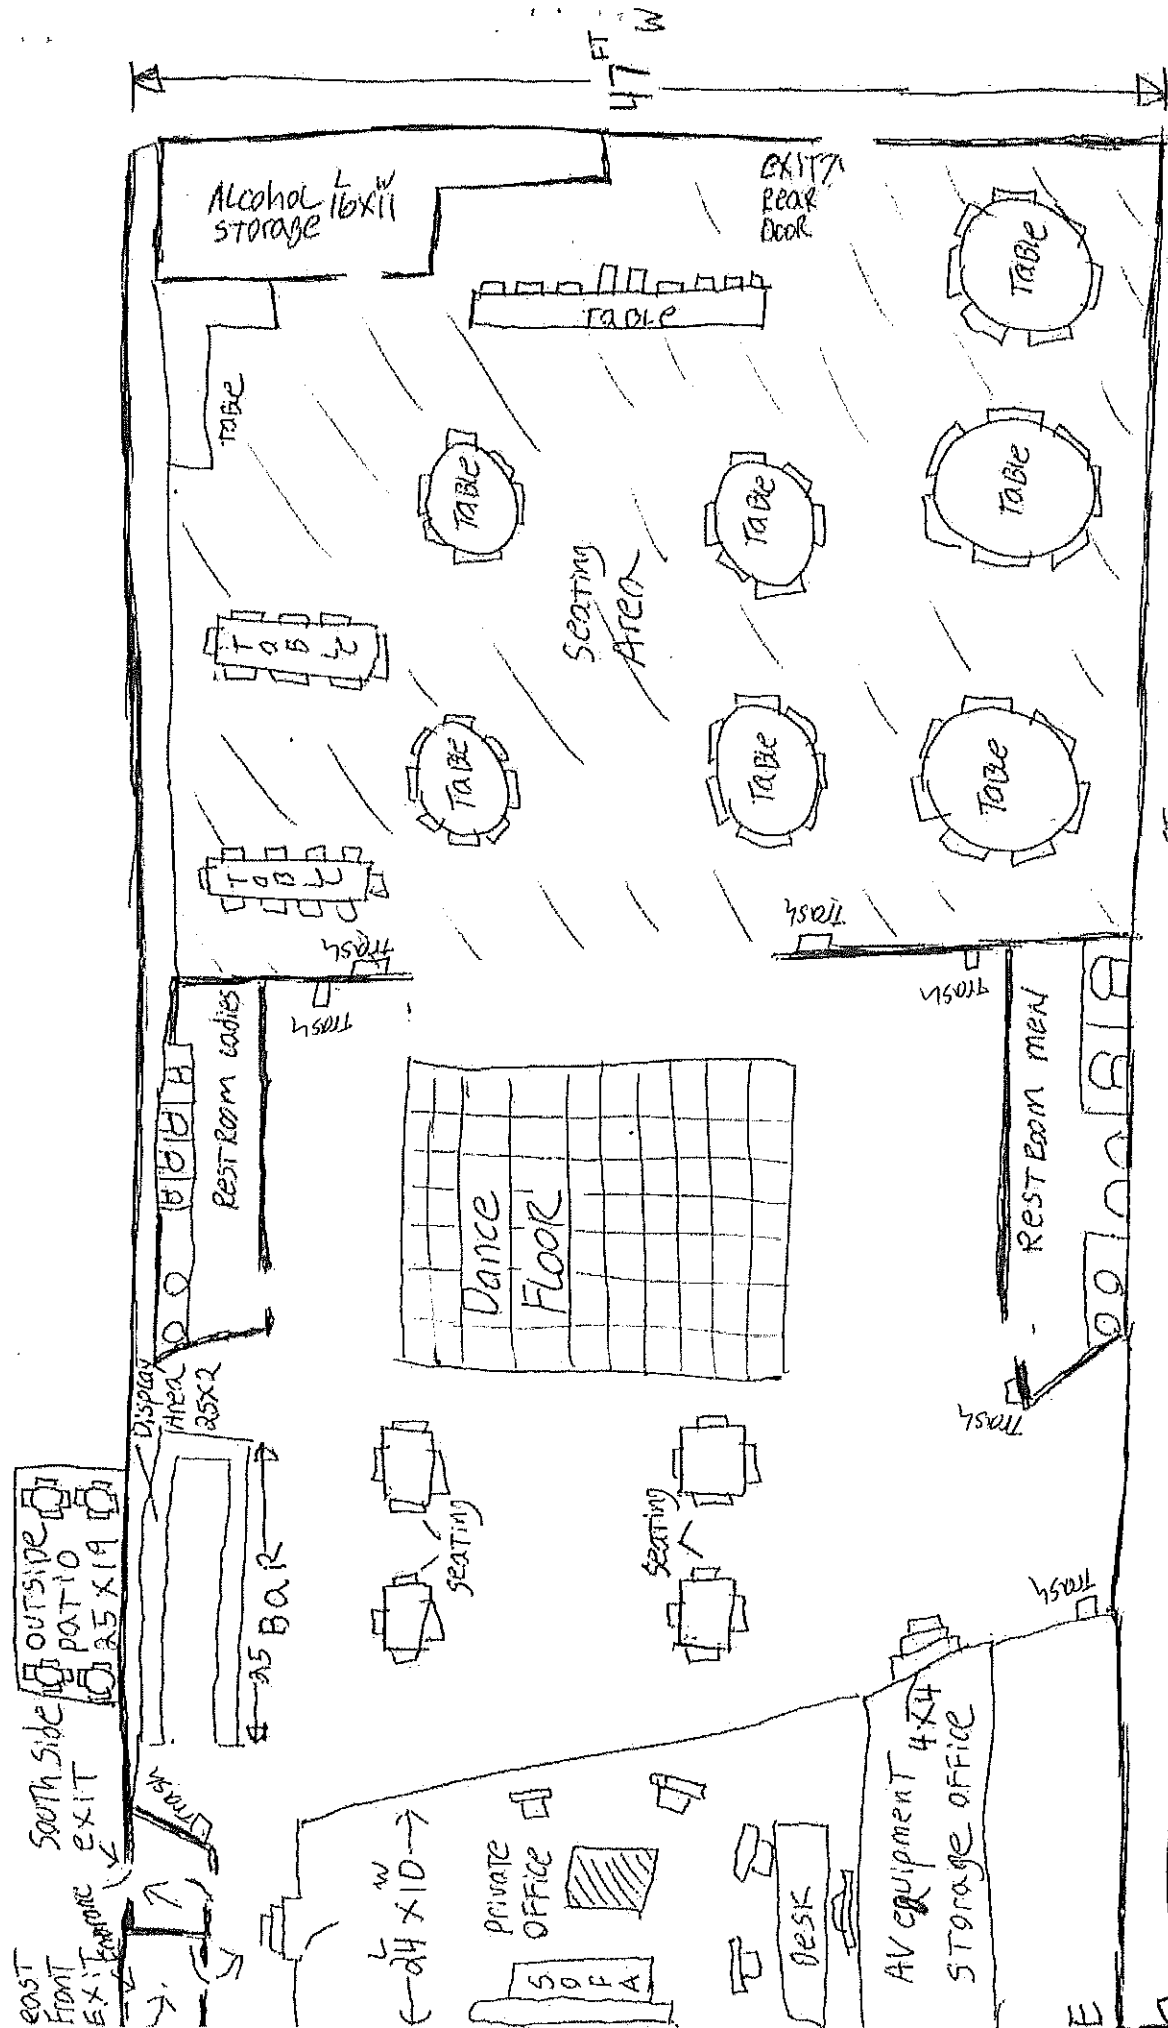 47 FT
W
Alcohol
STorage
L W
16X11
EXIT
REAR
DOOR
Table
TaBLe
TaBle
TaBle
TaBle
TaBle
TaBLe
Seating
Area
TaBle
TaBle
TaBle
TaBle
TaBLe
Trash
Trash
Trash
Trash
RestRoom Ladies
RestRoom men
Dance
FlooR
Display
Area
25X2
Trash
OUTSIDE
PATIO
25X19
25
BaR
seating
seating
Trash
South Side
EXIT
Trash
east
Front
EXIT
L W
24 X 10
Private
OFFICE
SOFA
Desk
AV equipment 4X4
STorage OFFice
E